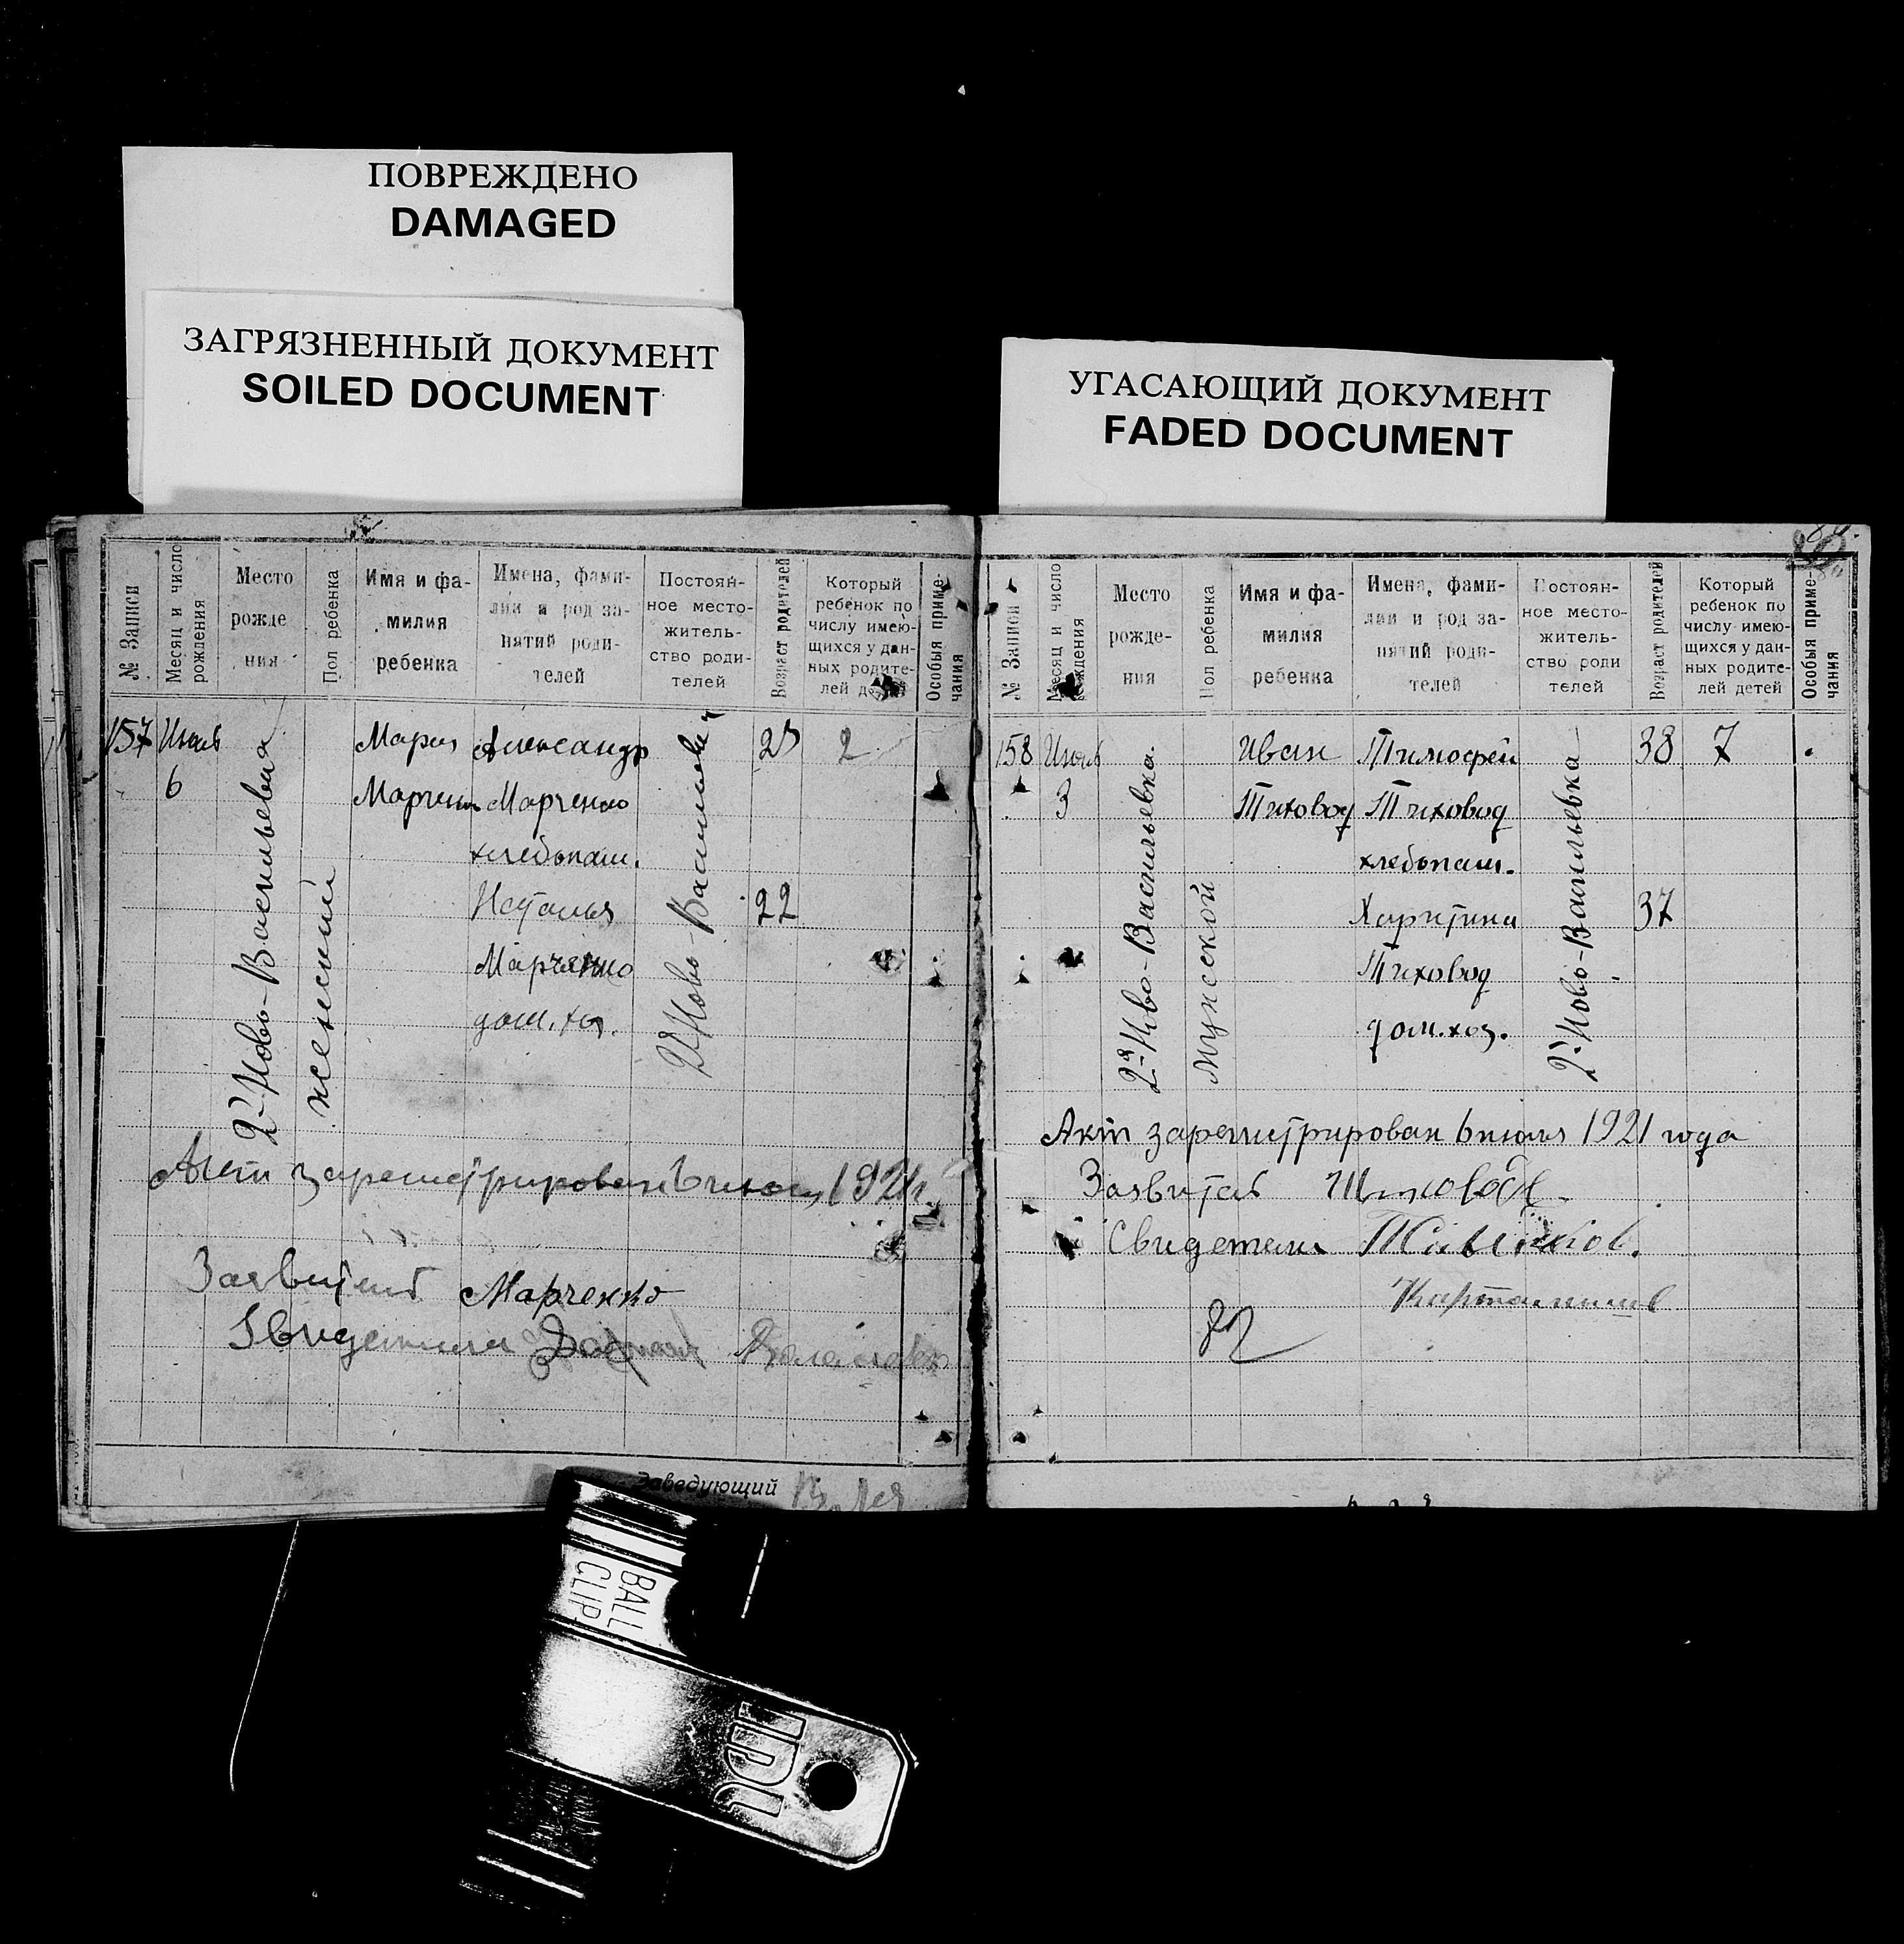 ПОВРЕЖДЕНО
DAMAGED
ЗАГРЯЗНЕННЫЙ ДОКУМЕНТ
SOILED DOCUMENT
УГАСАЮЩИЙ ДОКУМЕНТ
FADED DOCUMENT
№ Записи
Месяц и число
рождения
Место
рожде
ния
Пол ребенка
Имя и фа-
милия
ребенка
Имена, фами-
лии и род за-
нятий роди-
телей
Постоян-
ное место-
житель-
ство роди-
телей
Возраст родителей
Который
ребенок по
числу имею-
щихся у дан-
ных родите-
лей детей
Особыя приме-
чания
157 Июль
6
2-Ново-Васильевка
женский
Мария
Марченко
Александр
Марченко
хлебопаш.
Наталья
Марченко
дом. хоз.
2 Ново-Васильевка
22
2
Акт зарегистрирован 6 июля 1921 г.
Заявитель Марченко
Свидетели
Заведующий
№ Записи
Месяц и число
рождения
Место
рожде-
ния
Пол ребенка
Имя и фа-
милия
ребенка
Имена, фами-
лии и род за-
нятий роди-
телей
Постоян-
ное место-
житель-
ство роди
телей
Возраст родителей
Который
ребенок по
числу имею-
щихся у дан-
ных родите-
лей детей
Особыя приме-
чания
158 Июль
3
2-я Ново-Васильевка
Мужеской
Иван
Тиховод
Тимофей
Тиховод
хлебопаш.
Харитина
Тиховод
дом. хоз.
2 Ново-Васильевка
38
37
7
Акт зарегистрирован 6 июля 1921 года
Заявитель
Свидетели
BALL
CLIP